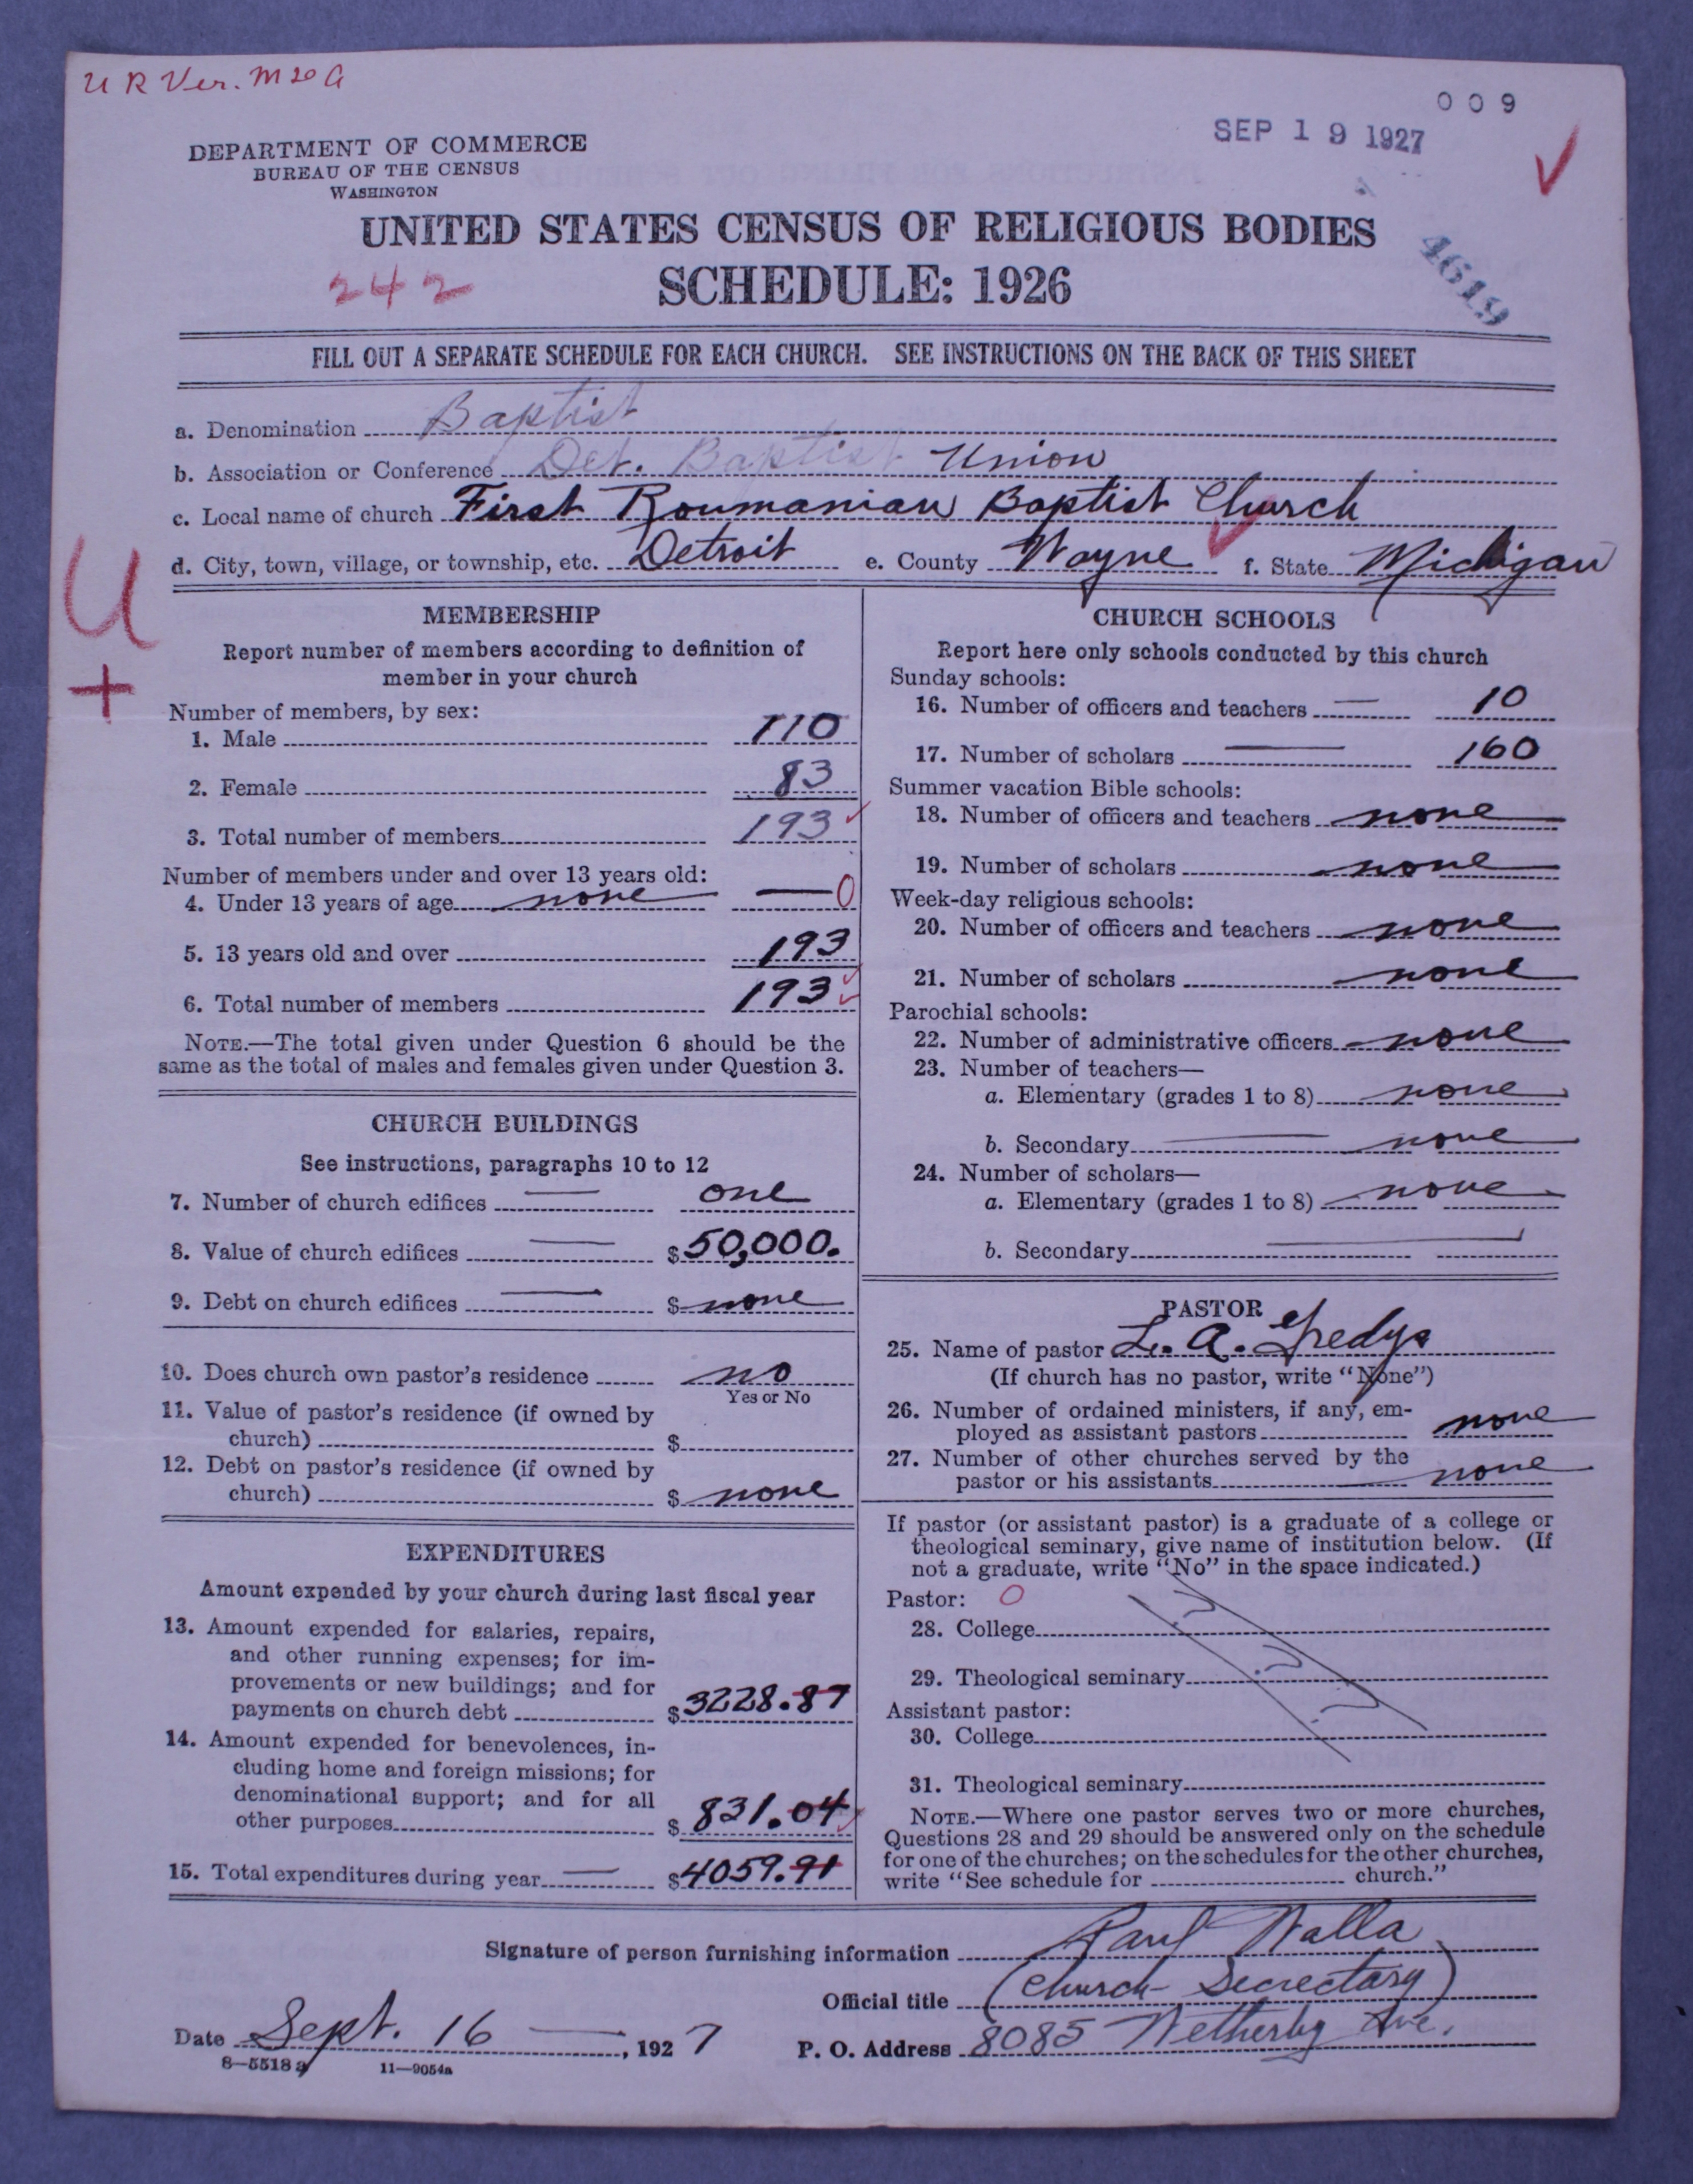 U R Ver. M 20 G
009
SEP 19 1927
DEPARTMENT OF COMMERCE
BUREAU OF THE CENSUS
WASHINGTON
UNITED STATES CENSUS OF RELIGIOUS BODIES
242
SCHEDULE: 1926
4619
FILL OUT A SEPARATE SCHEDULE FOR EACH CHURCH. SEE INSTRUCTIONS ON THE BACK OF THIS SHEET
a. Denomination Baptist
b. Association or Conference Det. Baptist Union
c. Local name of church First Roumanian Baptist Church
d. City, town, village, or township, etc. Detroit e. County Wayne f. State Michigan
U
+
MEMBERSHIP
Report number of members according to definition of
member in your church
Number of members, by sex:
1. Male 110
2. Female 83
3. Total number of members 193
Number of members under and over 13 years old:
4. Under 13 years of age none — 0
5. 13 years old and over 193
6. Total number of members 193
NOTE.—The total given under Question 6 should be the
same as the total of males and females given under Question 3.
CHURCH BUILDINGS
See instructions, paragraphs 10 to 12
7. Number of church edifices — one
8. Value of church edifices — $50,000.
9. Debt on church edifices — $ none
10. Does church own pastor's residence no
Yes or No
11. Value of pastor's residence (if owned by
church) $
12. Debt on pastor's residence (if owned by
church) $ none
EXPENDITURES
Amount expended by your church during last fiscal year
13. Amount expended for salaries, repairs,
and other running expenses; for im-
provements or new buildings; and for
payments on church debt $3228.87
14. Amount expended for benevolences, in-
cluding home and foreign missions; for
denominational support; and for all
other purposes $831.04
15. Total expenditures during year — $4059.91
CHURCH SCHOOLS
Report here only schools conducted by this church
Sunday schools:
16. Number of officers and teachers — 10
17. Number of scholars — 160
Summer vacation Bible schools:
18. Number of officers and teachers none
19. Number of scholars none
Week-day religious schools:
20. Number of officers and teachers none
21. Number of scholars none
Parochial schools:
22. Number of administrative officers none
23. Number of teachers—
a. Elementary (grades 1 to 8) none
b. Secondary — none
24. Number of scholars—
a. Elementary (grades 1 to 8) none
b. Secondary —
PASTOR
25. Name of pastor L. A. Gredys
(If church has no pastor, write "None")
26. Number of ordained ministers, if any, em-
ployed as assistant pastors none
27. Number of other churches served by the
pastor or his assistants none
If pastor (or assistant pastor) is a graduate of a college or
theological seminary, give name of institution below. (If
not a graduate, write "No" in the space indicated.)
Pastor: 0
28. College
29. Theological seminary
Assistant pastor:
30. College
31. Theological seminary
NOTE.—Where one pastor serves two or more churches,
Questions 28 and 29 should be answered only on the schedule
for one of the churches; on the schedules for the other churches,
write "See schedule for church."
Signature of person furnishing information Paul Walla
Official title (Church Secretary)
Date Sept. 16 —, 1927 P. O. Address 8085 Wetherby Ave.
8—5518 a 11—9054a